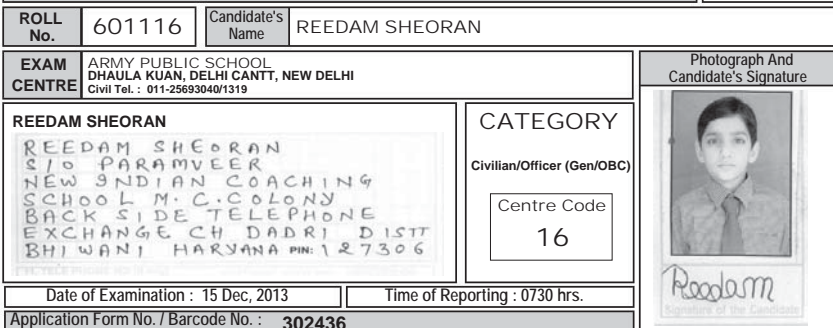 ROLL No. 601116 Candidate's Name REEDAM SHEORAN
EXAM CENTRE
ARMY PUBLIC SCHOOL
DHAULA KUAN, DELHI CANTT, NEW DELHI
Civil Tel. : 011-25693040/1319
Photograph And
Candidate's Signature
REEDAM SHEORAN
REEDAM SHEORAN
S/O PARAMVEER
NEW INDIAN COACHING
SCHOOL M.C.COLONY
BACK SIDE TELEPHONE
EXCHANGE CH DADRI DISTT
BHIWANI HARYANA PIN: 127306
CATEGORY
Civilian/Officer (Gen/OBC)
Centre Code
16
Reedam
Signature of the Candidate
Date of Examination : 15 Dec, 2013
Time of Reporting : 0730 hrs.
Application Form No. / Barcode No. : 302436